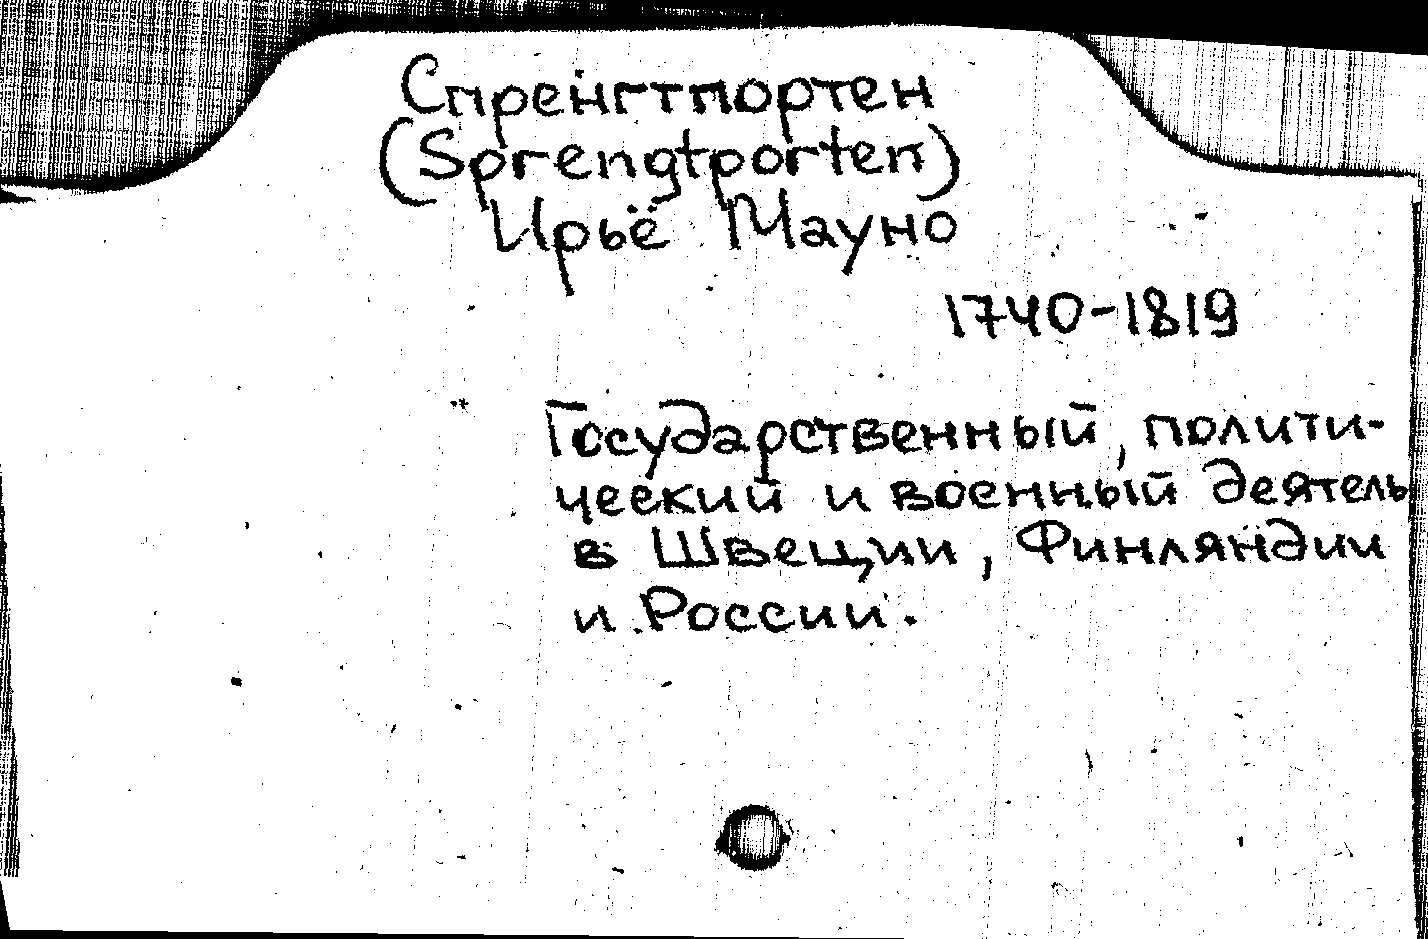 Спренгтпортен
(Sprengtporten)
Ирьё Мауно
1740-1819
Государственный, полити-
ческий и военный деятель
в Швеции, Финляндии
и России.